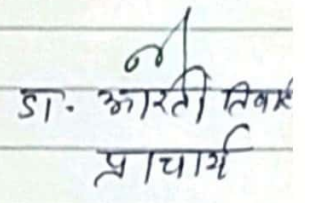 डा. आरती तिवारी
प्राचार्य